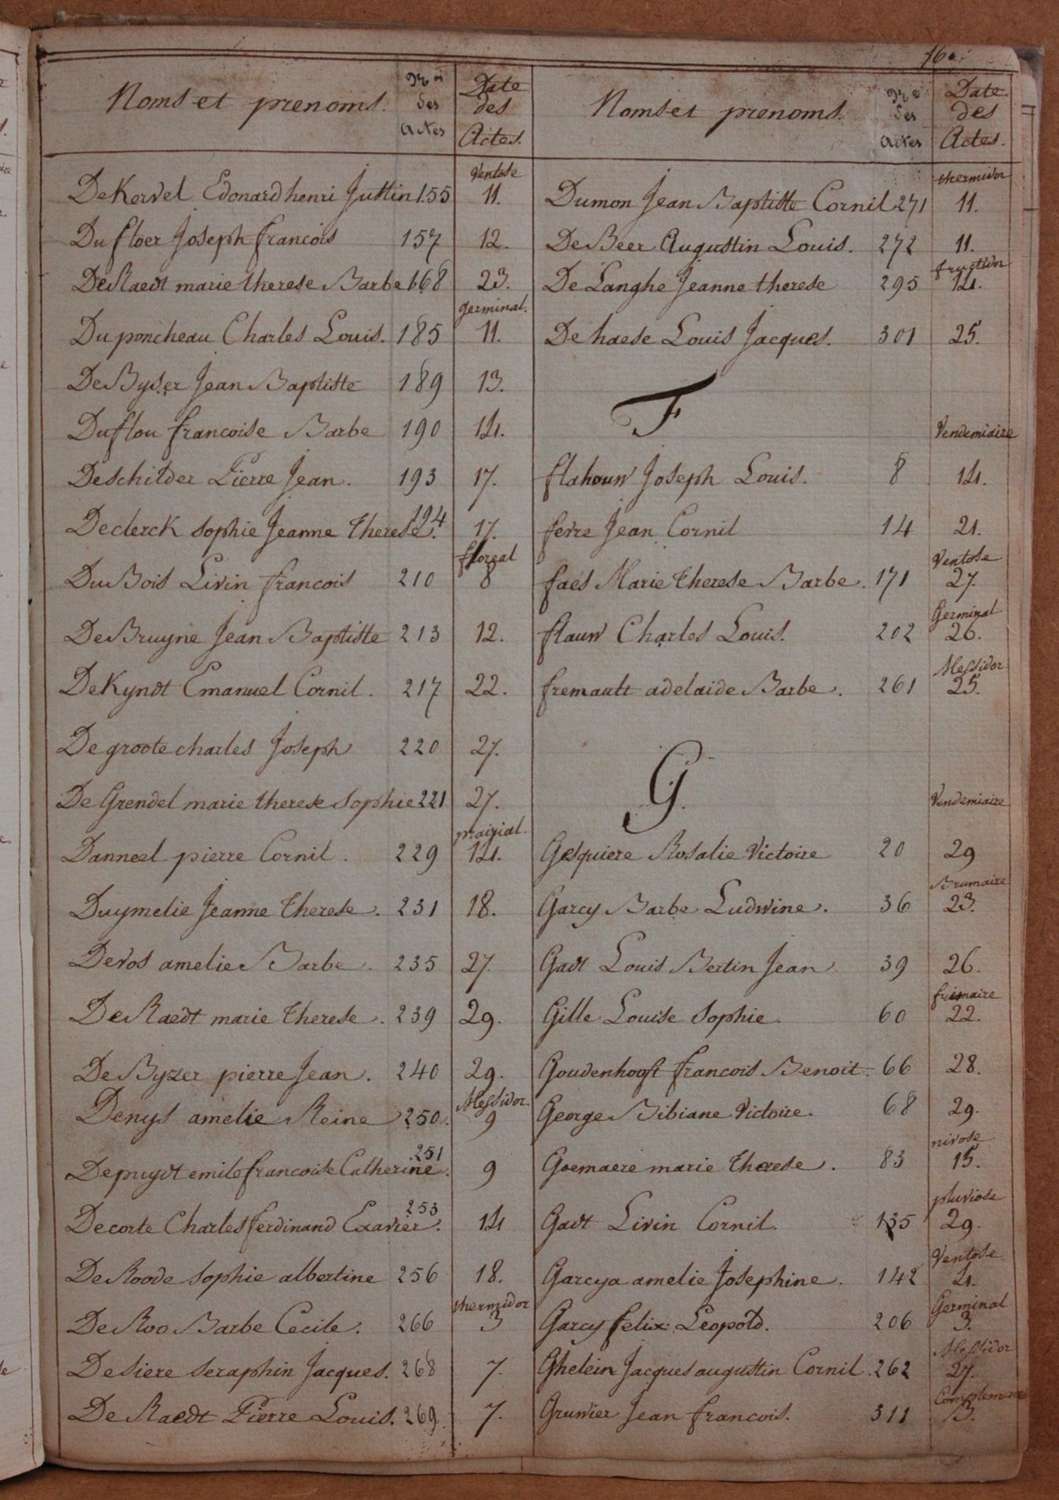 160.
Noms et prenoms. Nr̃o des Actes Date des Actes.
Ventose
DeKervel Edouard henri Justin 155 11.
Dufloer Joseph francois 157 12.
DeRaedt marie therese Barbe 168 23.
germinal.
Duponcheau Charles Louis. 185 11.
DeByser Jean Baptiste 189 13.
Duflou francoise Barbe 190 14.
Deschilder Pierre Jean. 193 17.
Declerck sophie Jeanne Therese. 194 17.
floreal
DuBois Livin francois 210 8
DeBruyne Jean Baptiste 213 12.
DeKyndt Emanuel Cornil. 217 22.
Degroote charles Joseph 220 27.
De Grendel marie therese sophie 221 27.
prairial.
Danneel pierre Cornil. 229 14.
Duymelie Jeanne Therese. 231 18.
Devos amelie Barbe. 235 27.
DeRaedt marie therese. 239 29.
DeByzer pierre Jean. 240 29.
Messidor.
Denys amelie Reine 250. 9
Depuydt emile francoise Catherine. 251 9
Decorte Charles ferdinand Exavier. 253 14
DeRoode sophie albertine 256 18.
thermidor
DeRoo Barbe Cecile. 266 3
Desiere seraphin Jacques. 268 7.
DeRaedt Pierre Louis. 269. 7.
Noms et prenoms. Nr̃o des Actes Date des Actes.
thermidor
Dumon Jean Baptiste Cornil 271 11.
DeBeer Augustin Louis. 272 11.
fructidor
De Langhe Jeanne therese 295 14.
De haese Louis Jacques. 301 25.
F
Vendemiaire
flahouw Joseph Louis. 8 14.
fevre Jean Cornil 14 21.
Ventose
faes Marie therese Barbe. 171 27.
Germinal
flauw Charles Louis. 202 26.
Messidor
fremault adelaide Barbe. 261 25.
G.
Vendemiaire
Gesquiere Rosalie Victoire 20 29
Brumaire
Garcy Barbe Ludwine. 36 23.
Gadt Louis Bertin Jean 39 26.
frimaire
Gille Louise sophie. 60 22.
Goudenhooft francois Benoit. 66 28.
George Bibiane Victoire. 68 29.
nivose
Goemaere marie Therese. 83 15.
pluviose
Gadt Livin Cornil. 135 29.
Ventose
Garcya amelie Josephine. 142 4.
Germinal
Garcy felix Leopold. 206 3.
Messidor
Ghelein Jacques augustin Cornil. 262 27.
Complemre
Gruwier Jean francois. 311 3.